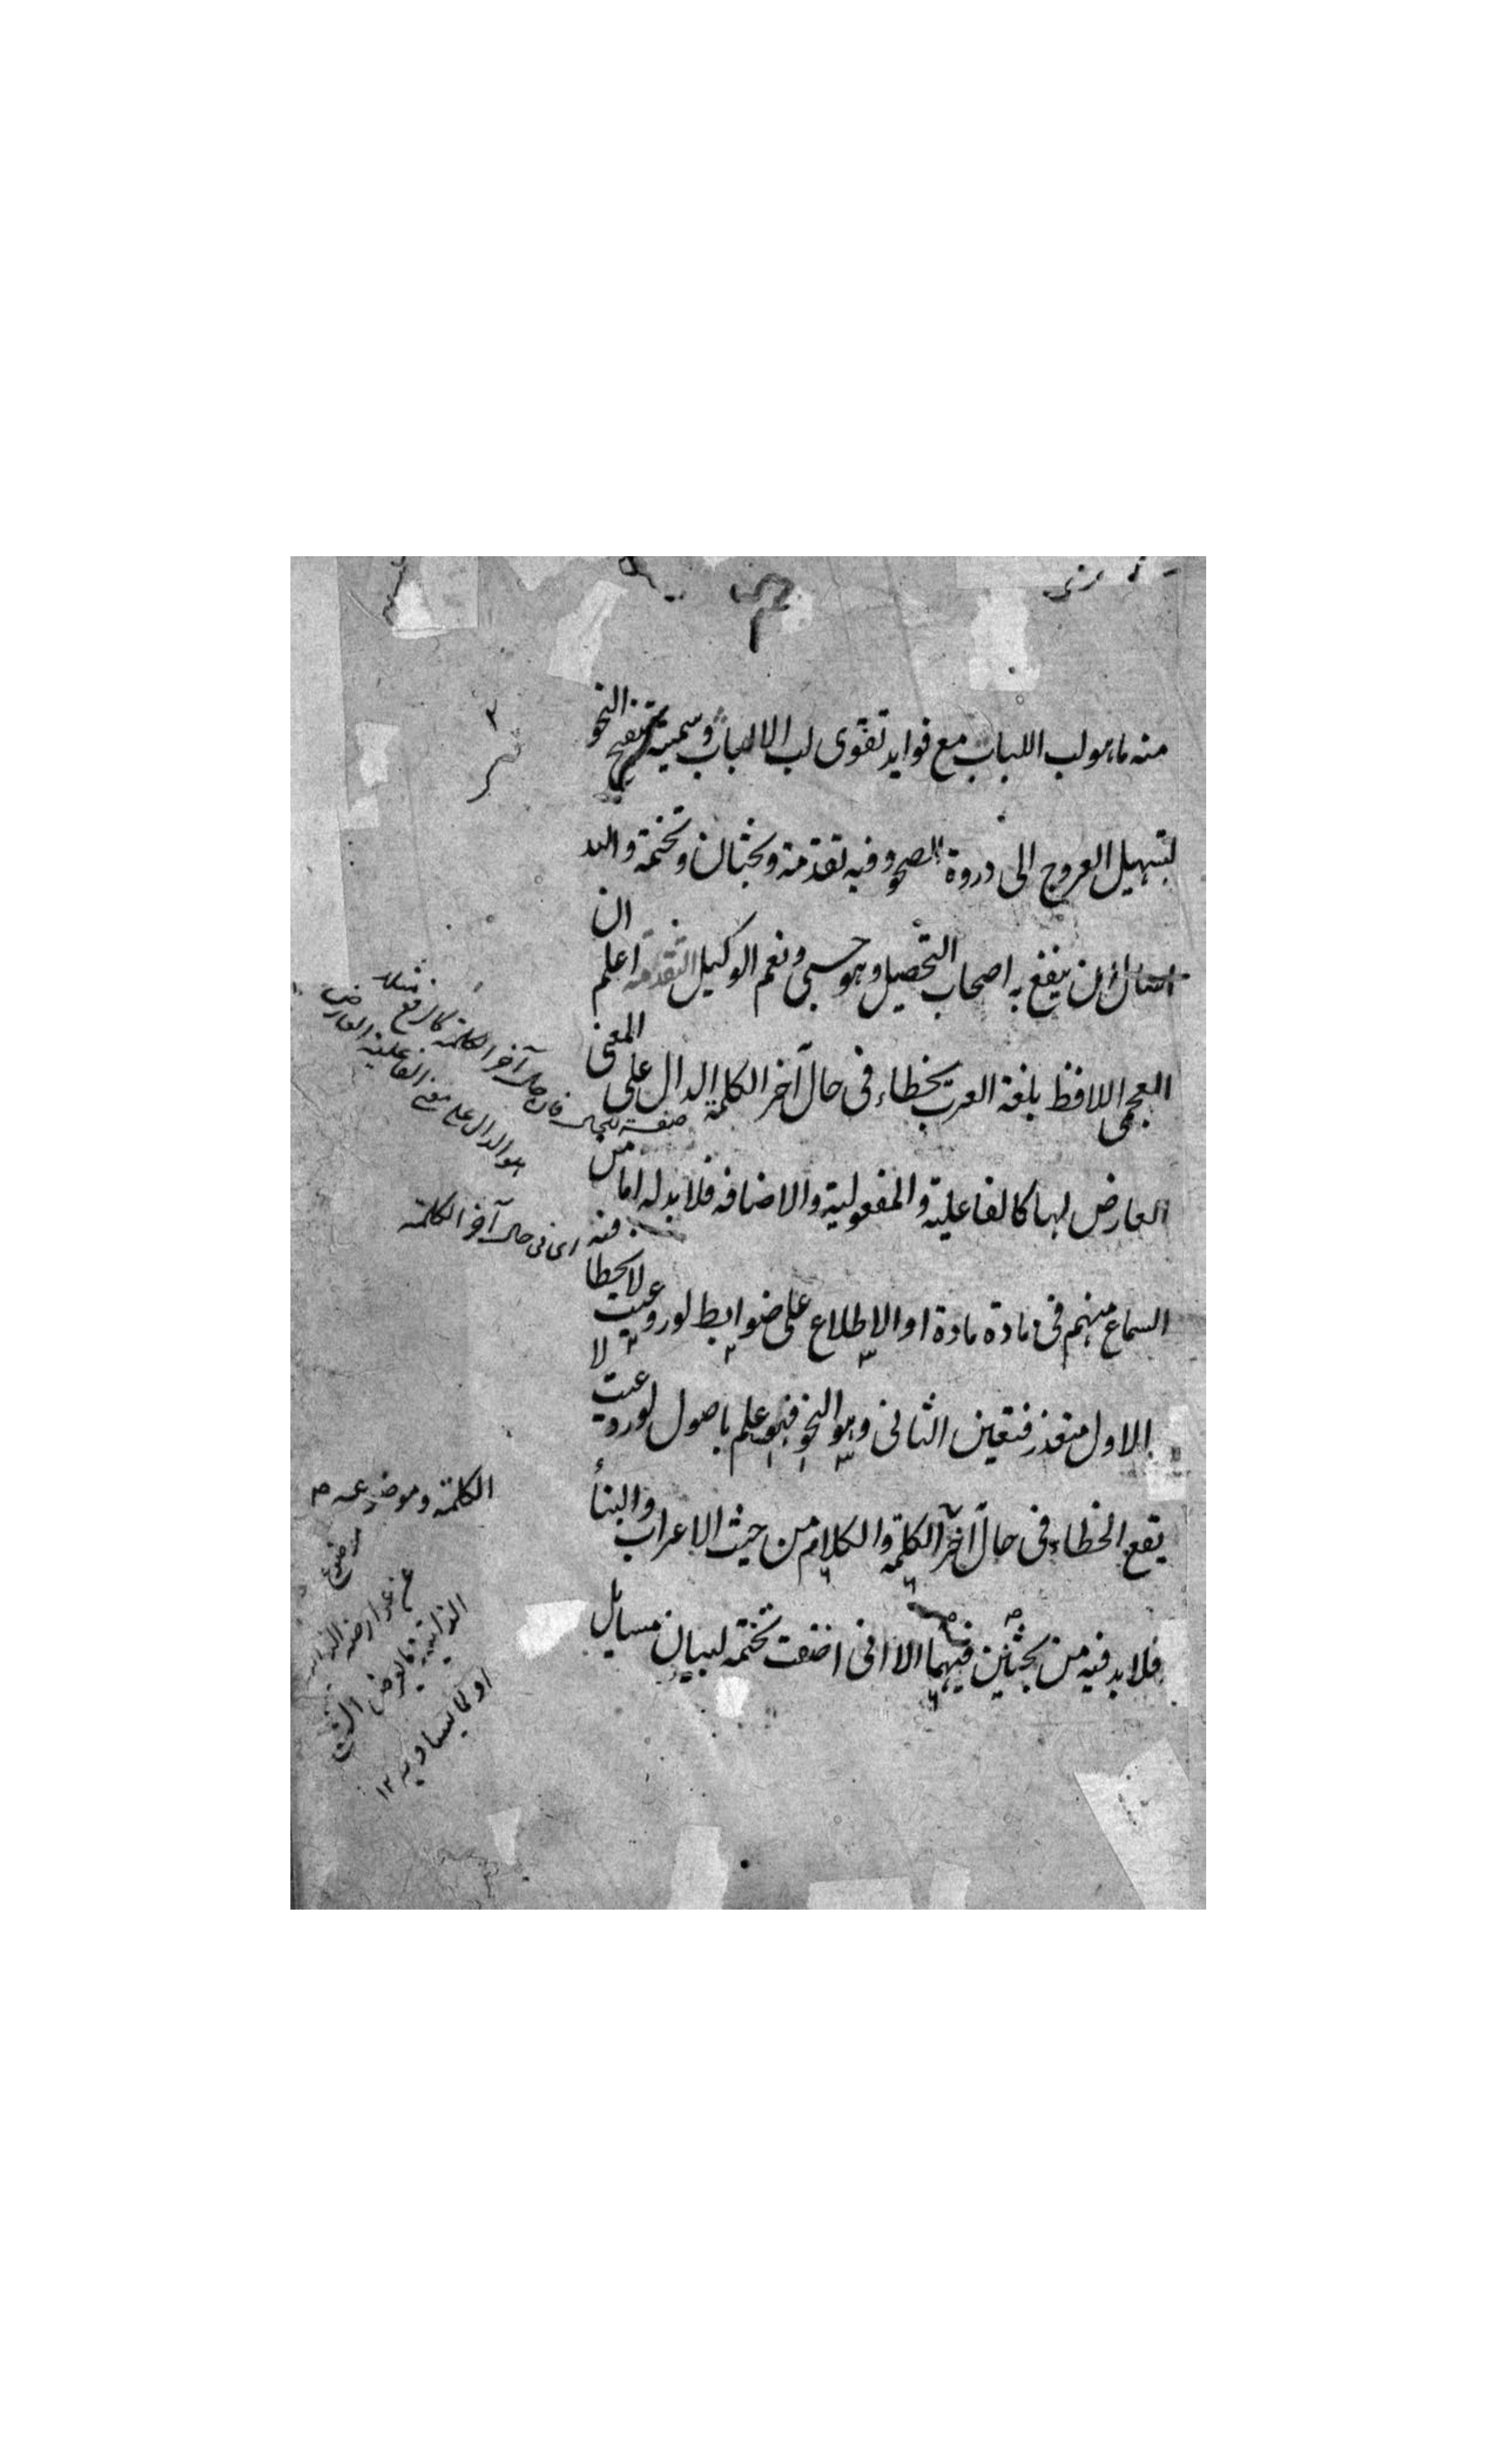 منه ما هو لب اللباب مع فوايد تقوى لب الالباب وسميته بتنقيح النحو
لتسهيل العروج الى ذروة الصحو وفيه تقدمة وبحثان وتختمة والله
اسال ان ينفع به اصحاب التحصيل وهو حسبى ونعم الوكيل التقدمة اعلم ان
العجمى اللافظ بلغة العرب يخطاء فى حال آخر الكلمة الدال على المعنى
العارض لها كالفاعلية والمفعولية والاضافه فلا بد له اما من
السماع منهم فى مادة مادة او الاطلاع على ضوابط لو روعيت لا يخطا
الاول متعذر فتعين الثانى وهو النحو فهو علم باصول لو روعيت لا
يقع الخطاء فى حال آخر الكلمة والكلام من حيث الاعراب والبناء
فلا بد فيه من بحثين فيهما الا انى اضفت تختمة لبيان مسايل
صفة للحال فان حال آخر الكلمة كالرفع مثلا
هو الدال على معنى الفاعلية العارض
اى فى حال آخر الكلمة
الكلمة وموضوعه